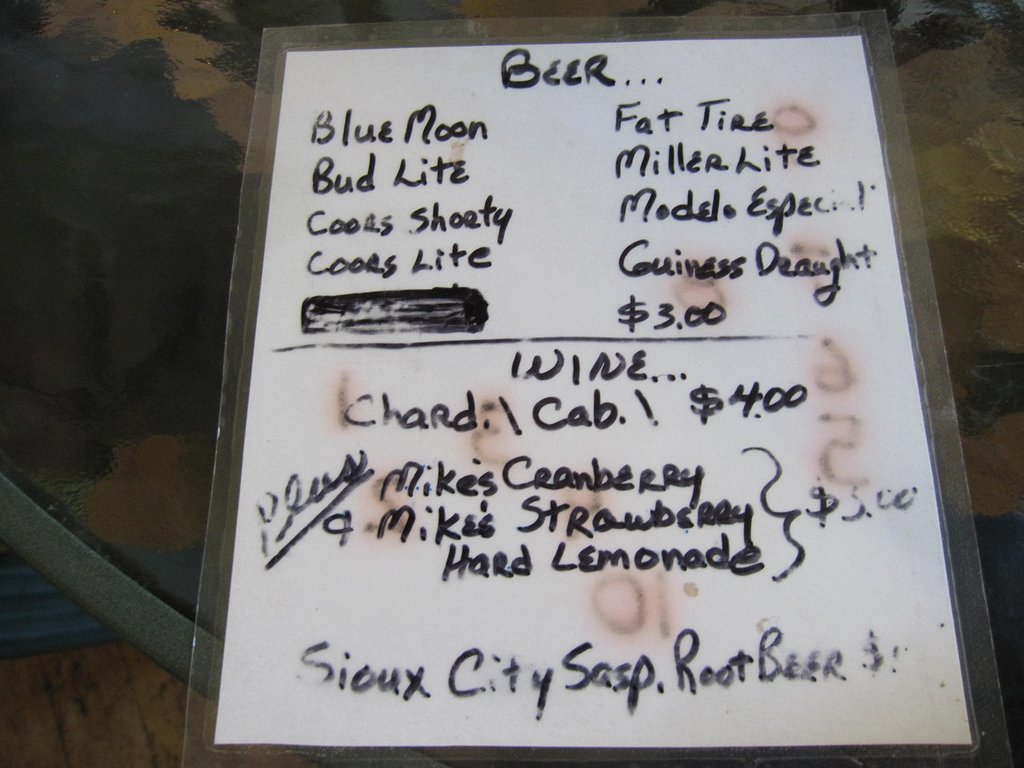 BEER...
Blue Moon
Bud Lite
Coors Shorty
Coors Lite
Fat Tire
Miller Lite
Modelo Especial
Guiness Draught
$3.00
WINE...
Chard.\ Cab.\ $4.00
Plus
Mike's Cranberry
& Mike's Strawberry
Hard Lemonade
$3.00
Sioux City Sasp. Root Beer $